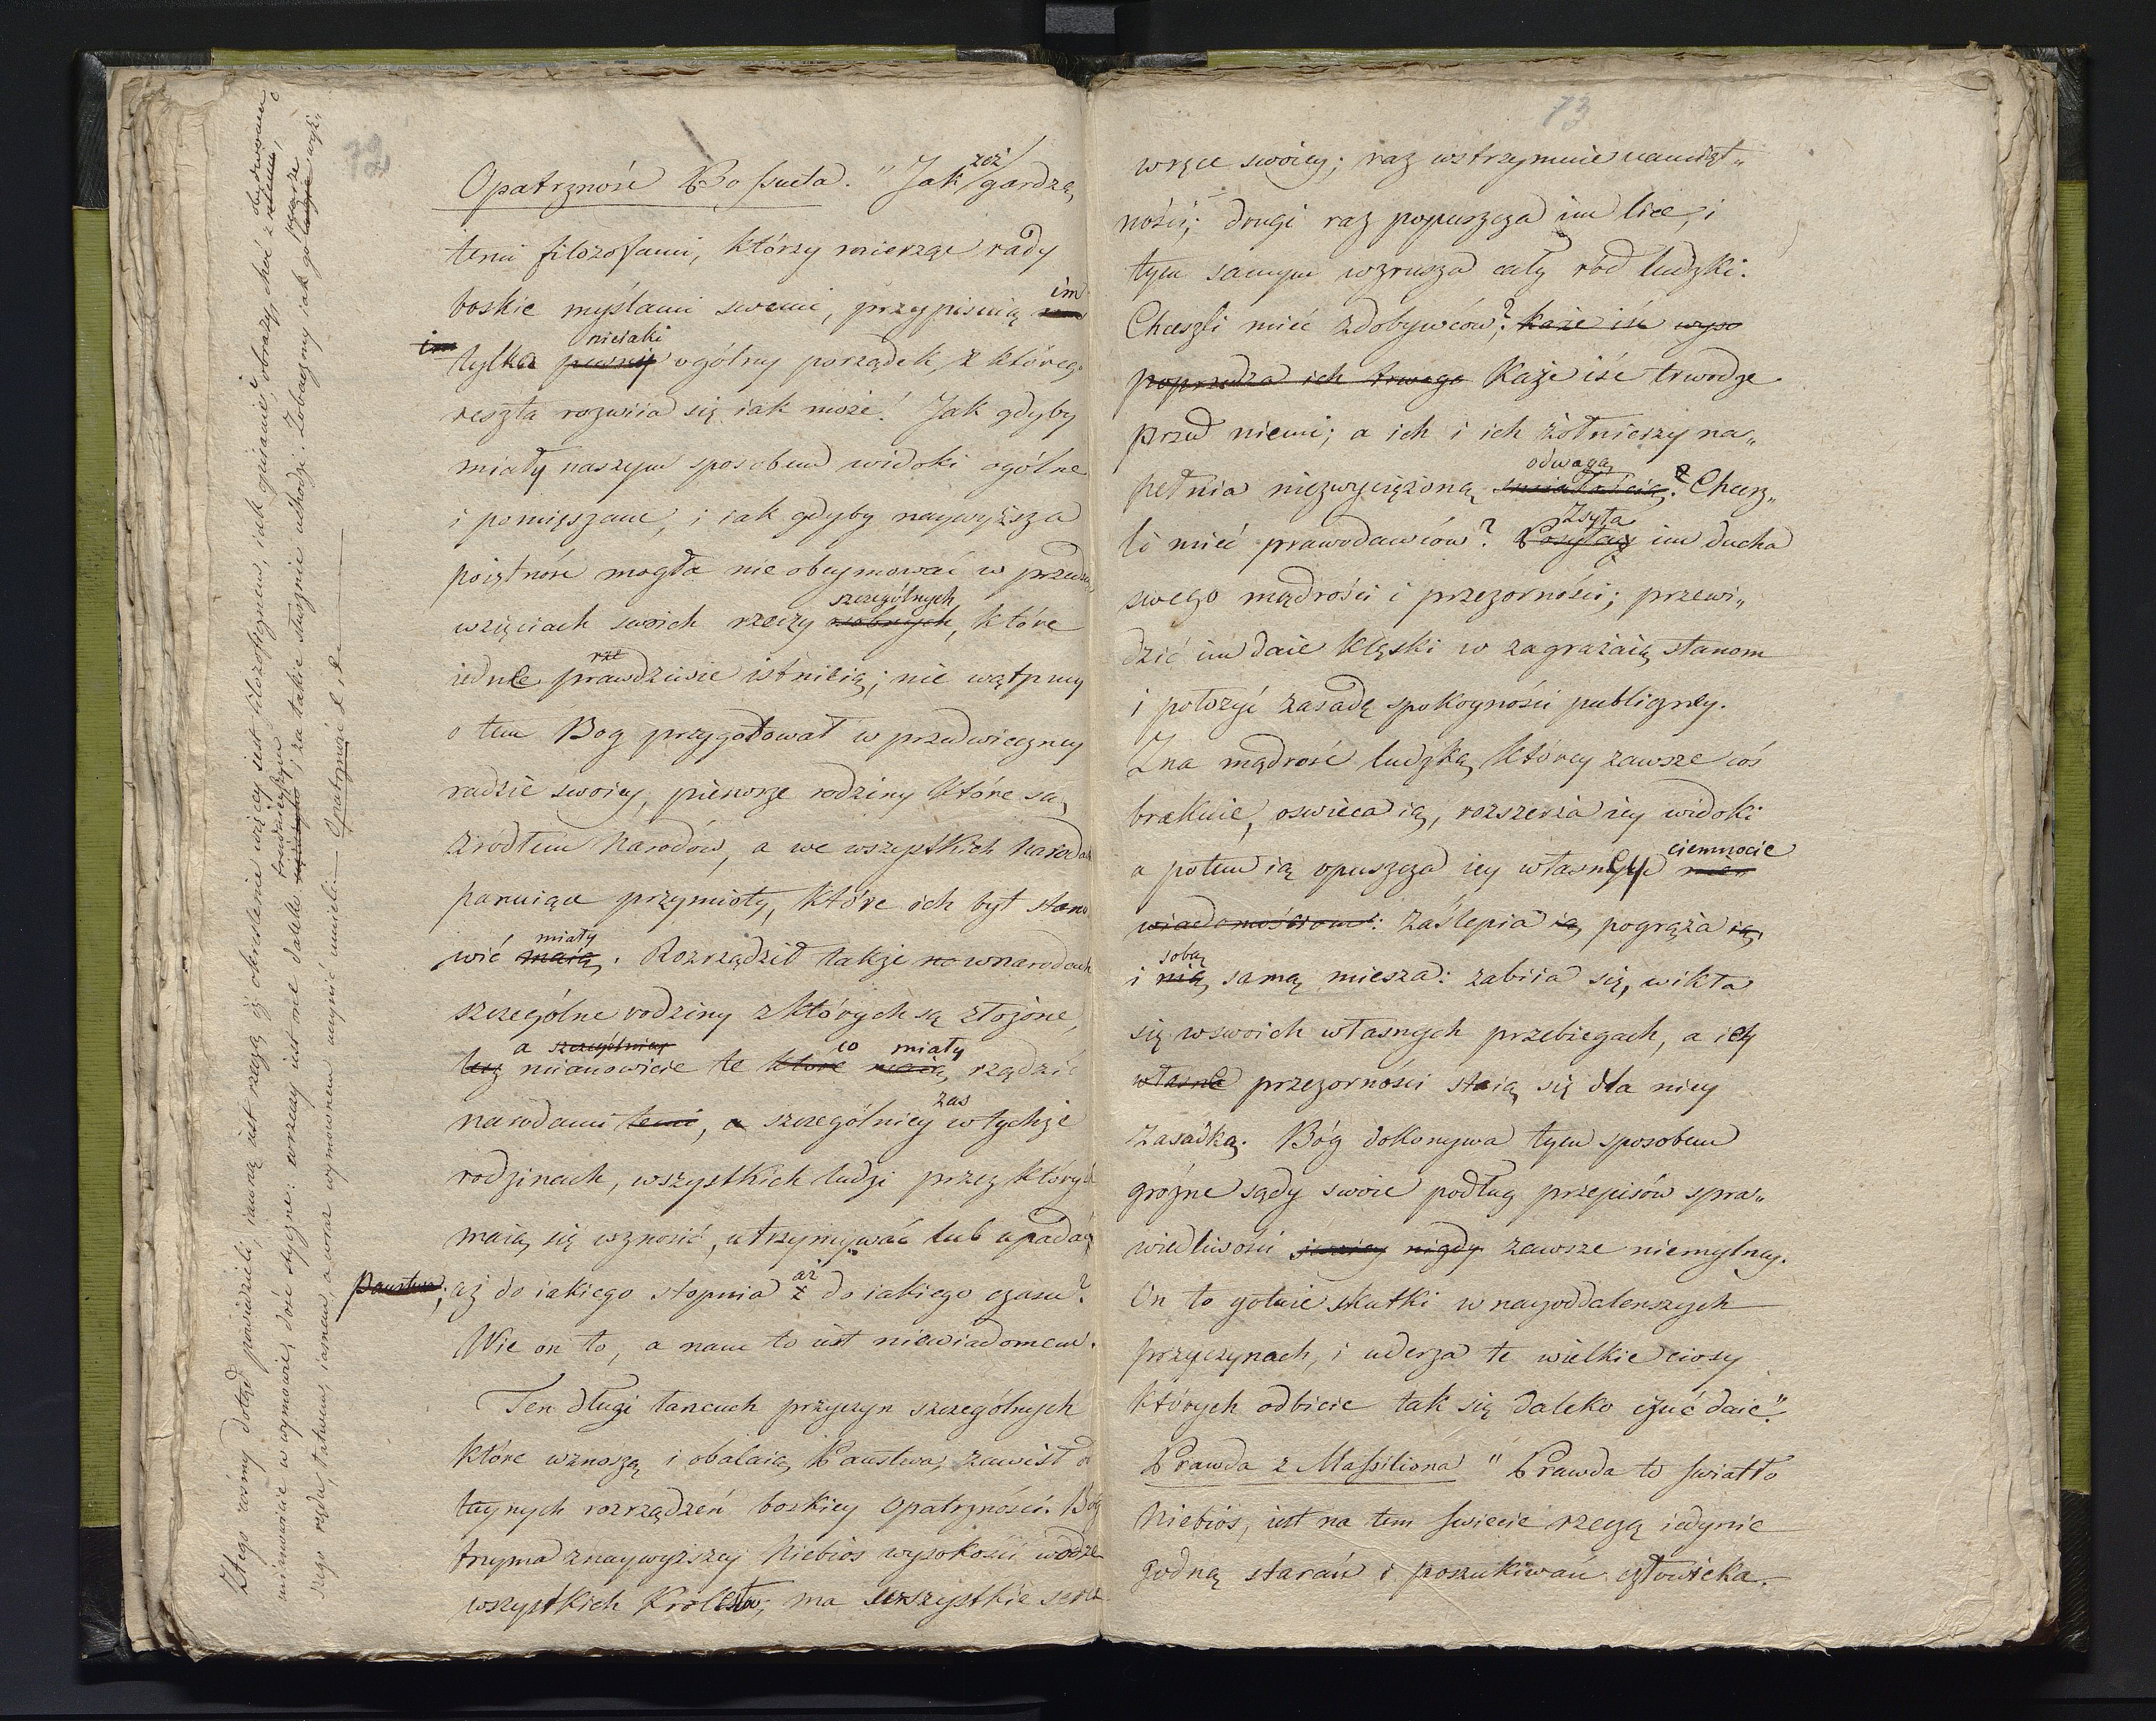 72
Opatrzność Bossueta. "Jakżeż gardzą
temi filozofami, którzy mierząc rady
boskie myślami swemi, przypisuią im
tylko nieiaki ogólny porządek, z którego
reszta rozwiia się iak może! Jak gdyby
miały naszym sposobem widoki ogólne
i pomięszane, i iak gdyby naywyższa
poiętność mogła nie obeymować w przedsię
wzięciach swoich rzeczy szczególnych, które
iedne prawdziwie istnieią; nie wątpmy
o tem Bog przygotował w przedwieczney
radzie swoiey, pierwsze rodziny które są
źródłem narodów, a we wszystkich narodach
panuiące przymioty, które ich byt stano
wić miały. Rozrządził także w narodach
szczególne rodziny z których są złożone,
a mianowicie te co miały rządzić
narodami, szczególniey zas w tychże
rodzinach, wszystkich ludzi przez których
maią się wznosić, utrzymywać lub upadać
; aż do iakiego stopnia aż do iakiego czasu?
Wie on to, a nam to iest niewiadomem.
Ten długi łancuch przyczyn szczególnych
które wznoszą i obalaią Państwa, zawisł od
taynych rozrządzeń boskiey Opatrzności. Bóg
trzyma z naywyższey Niebios wysokości wodze
wszystkich Królestw; ma wszystkie serca
Z tego cośmy dotąd powiedzieli; iawną iest rzeczą iż okreslenie więcey iest filozoficznem, iak opisanie; obrazy, choć z
mianowicie w wymowie, dość styczne: wrzeczy iest one daleko trwalszym; za takie słusznie uchodzi. Zobaczmy iak go
szego rzędu, tatwem, iasnem, a wraz wymownem uczynić umieli. — Opatrzność &c.
73
w ręce swoiey; raz wstrzymuie namięt„
ności; drugi raz popuszcza im lice, i
tym samym wzrusza cały ród ludzki.
Chceszli mieć zdobywców? każe iść wyso
poprzedza ich trwoga Każe iść trwodze
przed niemi; a ich i ich żołnierzy na„
pełnia niezwyciężoną odwagą. Chcesz„
li mieć prawodawców? Zsyła im ducha
swego mądrości i przezorności; przewi„
dzić im daie klęski w zagrażaią stanom
i położyć zasadę spokoyności publiczney.
Zna mądrość ludzką, którey zawsze coś
brakuie, oswieca ią, rozszerza iey widoki
a potem ią opuszcza iey własney ciemnocie
wiadomościom: zaślepia ią, pogrąża ią,
i sobą samą miesza: zabiia się, wikła
się w swoich własnych przebiegach, a iey
własne przezorności staią się dla niey
Zasadką. Bóg dokonywa tym sposobem
groźne sądy swoie podług przepisów spra„
wiedliwości nigdy zawsze niemylney.
On to gotuie skutki w nayoddalenszych
przyczynach, i uderza te wielkie ciosy
których odbicie tak się daleko czuć daie."
Prawda z Massiliona "Prawda to swiatło
Niebios, iest na tem swiecie rzeczą iedynie
godną starań i poszukiwań człowieka.